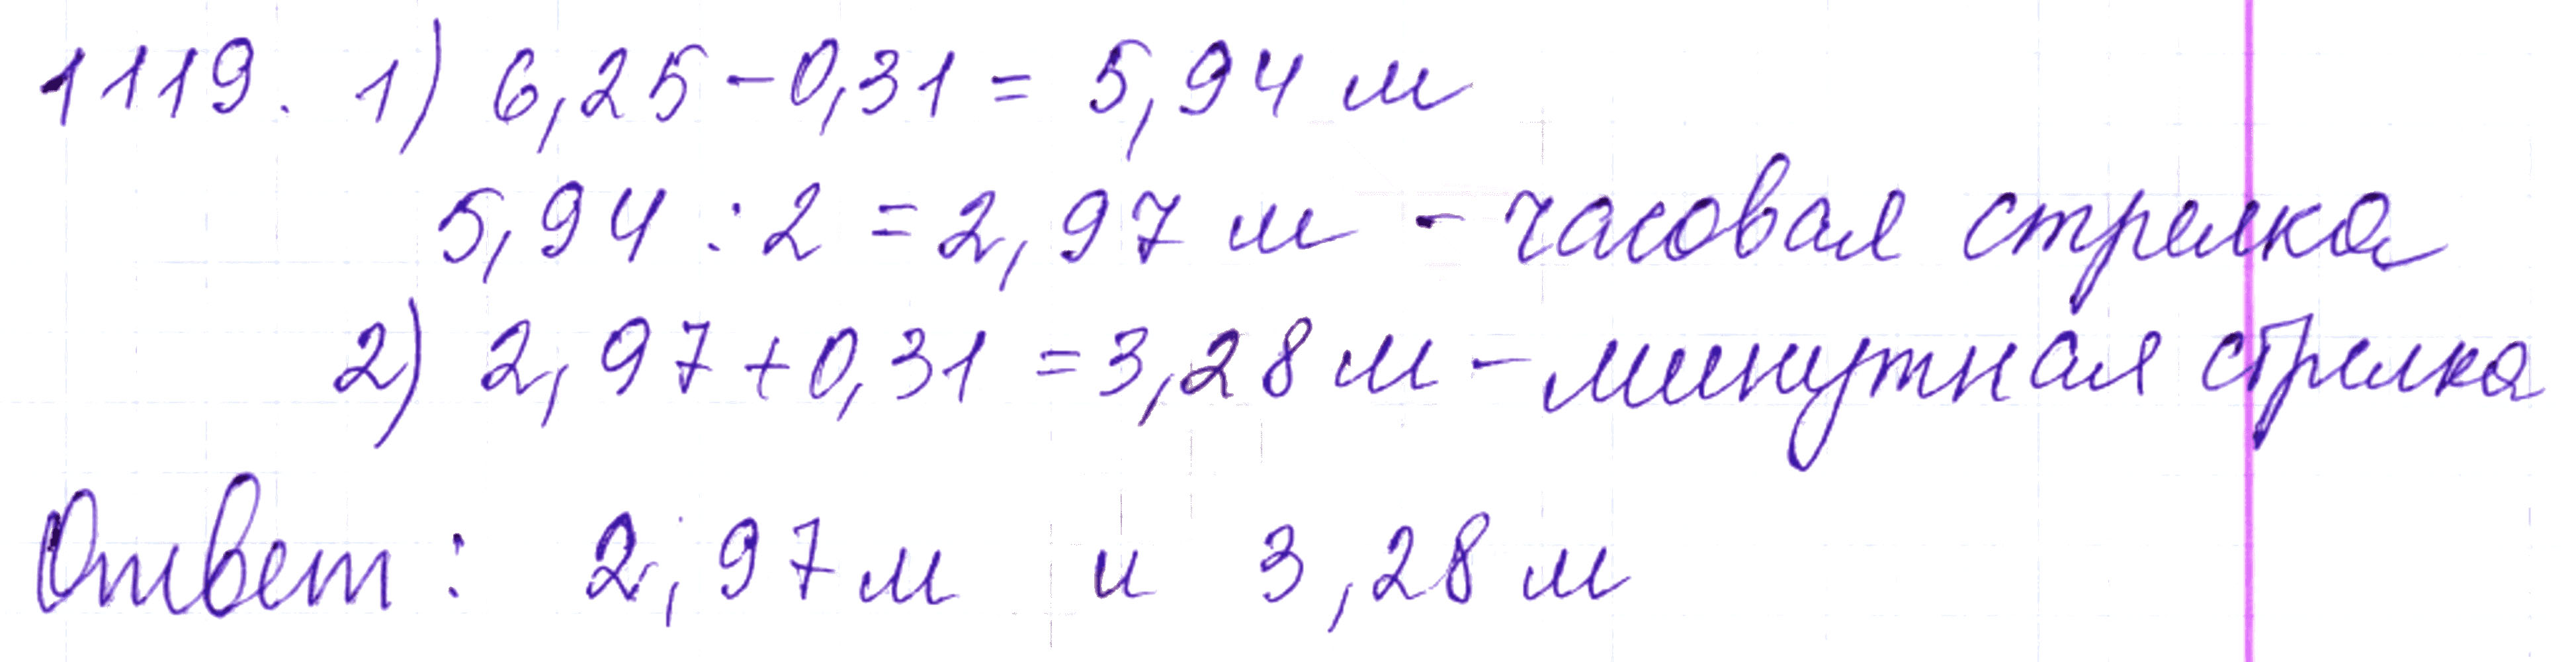 1119. 1) 6,25 - 0,31 = 5,94 м
5,94 : 2 = 2,97 м - часовая стрелка
2) 2,97 + 0,31 = 3,28 м - минутная стрелка
Ответ: 2,97 м и 3,28 м